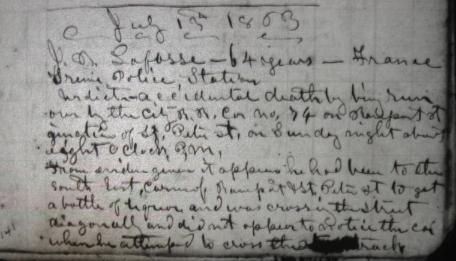 July 13th 1863
J. B. Lafosse – 64 years – France
Police Station
Verdict – accidental death by being run
over by the city R.R. Car No, 74 on
of St Peter st, on Sunday night about
eight O Clock P.M,
From evidence given it appears he had been to the
South East Corner of Rampart & St Peter st to get
a bottle of liquor and was crossin the street
diagonally and did not appear to notice the car
when he attempted to cross the track